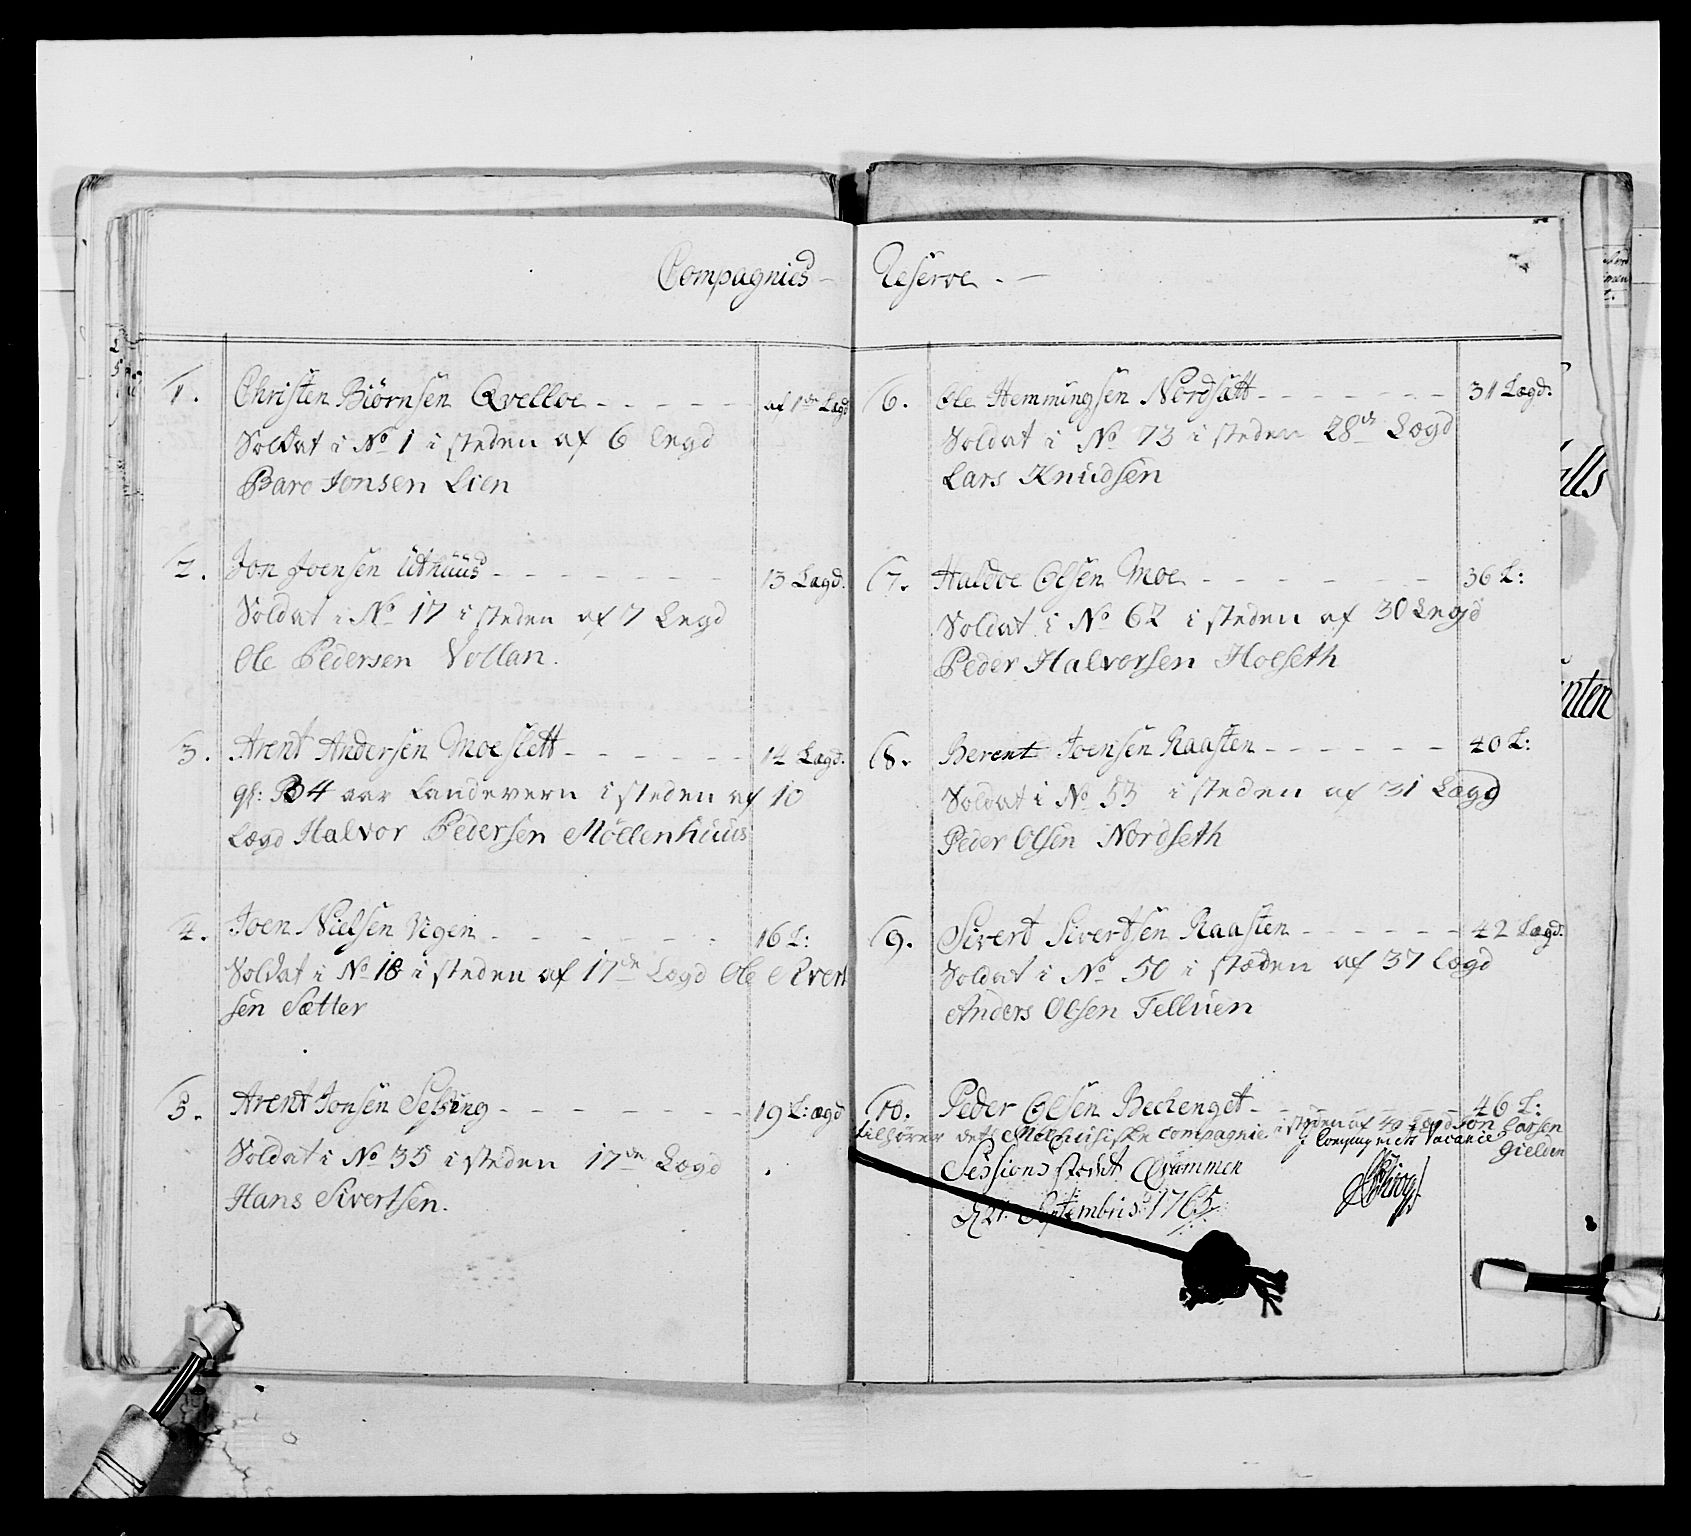 Compagnies - Reserve. -
1. Christen Biörnsen Qvelloe - - - - - af 1de Lægd
Soldat i No 1 i steden af 6 Legd
Baro Jonsen Lien
2. Jon Joensen Uthuus - - - - - - - 13 Lægd.
Soldat i No 17 i steden af 7 Legd
Ole Pedersen Vollan.
3. Arent Andersen Moeslett - - - - - - 14 Lægd.
4 aar Landevern i steden af 10
Lægd Halvor Pedersen Möllenhuus
4. Joen Nielsen Vigen - - - - - - - 16 L:
Soldat i No 18 i steden af 17de Lægd Ole Sivert
sen Sætter
5. Arent Jonsen Selsing - - - - - - - 19 L:ægd
Soldat i No 35 i steden 17de Lægd
Hans Sivertsen.
6. Ole Hemmingsen Nordsett - - - - - - 31 Lægd.
Soldat i No 73 i steden 28de Lægd
Lars Knudsen
7. Haldoe Olsen Moe - - - - - - - 36 L:
Soldat i No 62 i steden af 30 Legd
Peder Halvorsen Hoeseth
8. Berent Joensen Raasten - - - - - - 40 L:
Soldat i No 53 i steden af 31 Lægd
Peder Olsen Nordseth
9. Sivert Sivertsen Raasten - - - - - 42 Lægd.
Soldat i No 50 i stæden af 37 Lægd
Anders Olsen Telluen
10. Peder Olsen Bechenget - - - - - - 46 L:
tilhörer dett compagnie i steden af 49 Lægd Jon Larsen
Gielden
i Compagniets Vacance
Sessions stædet Qvammen
d 21. Septembris 1765